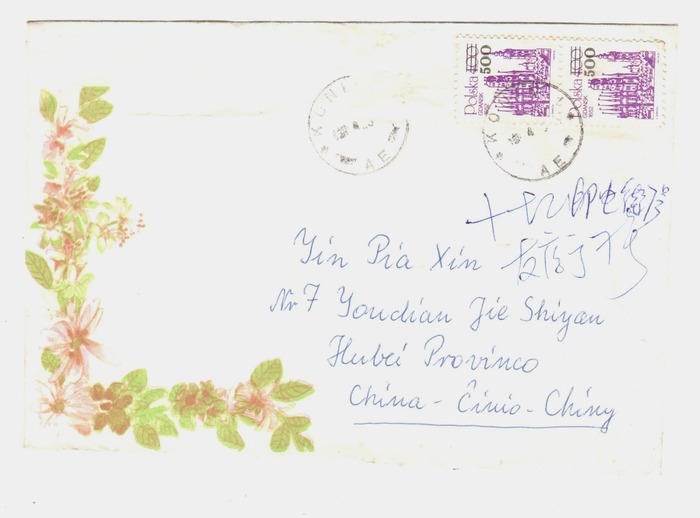 Polska 500
GDAŃSK
Polska 500
GDAŃSK
KONI
AE
KONI
AE
十堰邮电
Yin Pia Xin
Nr 7 Youdian Jie Shiyan
Hubei Provinco
China - Ĉinio - Chiny